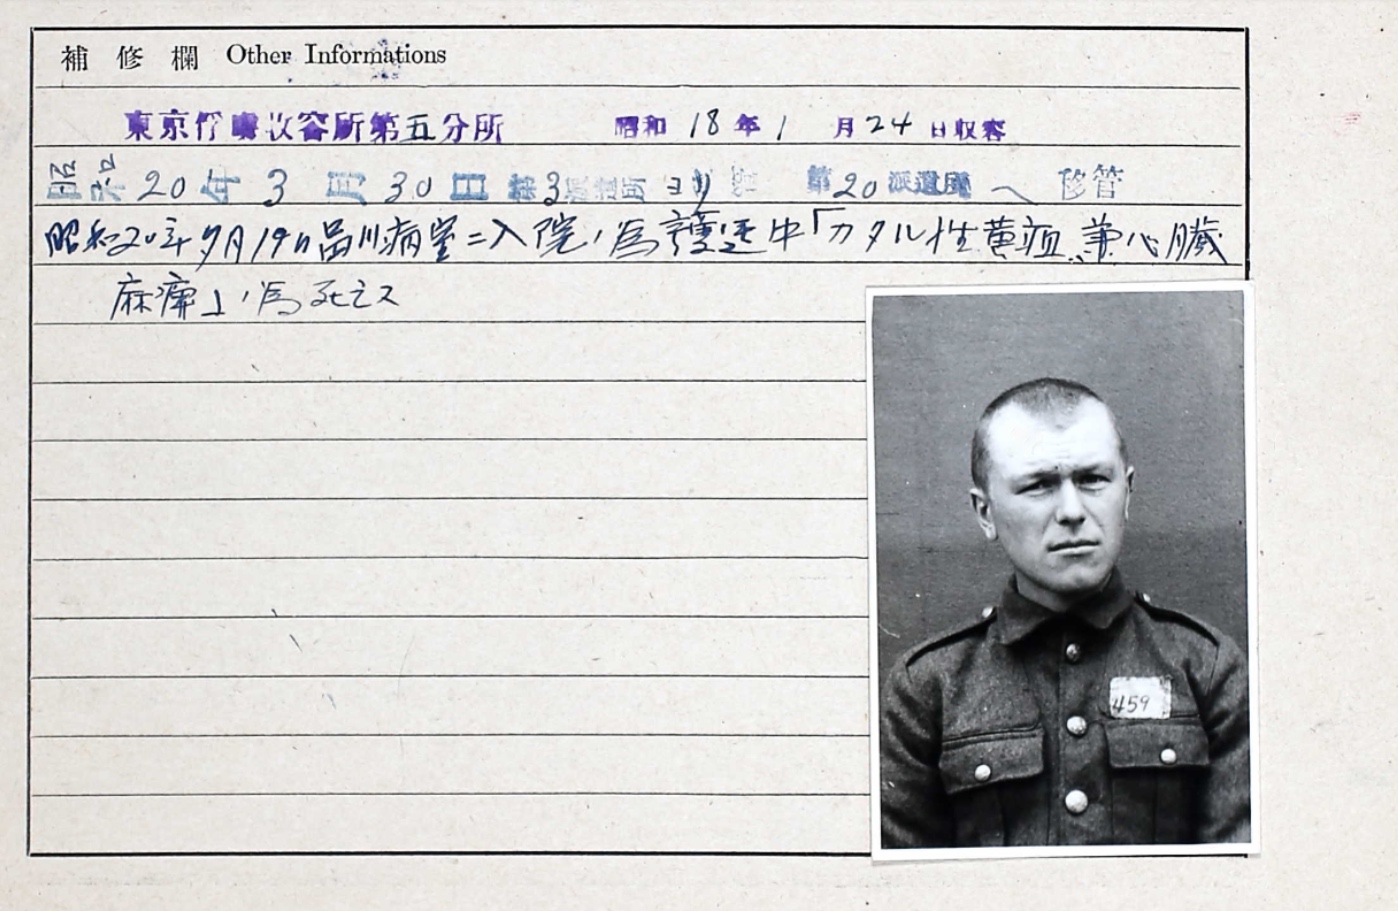 補修欄 Other Informations
東京俘虜收容所第五分所 昭和18年1月24日収容
昭和20年3月30日 第3派遣所ヨリ 第20派遣所へ移管
昭和20年 月19日品川病室ニ入院ノ為護送中「カタル性黄疸兼心臓
麻痺」ノ為死亡ス
459